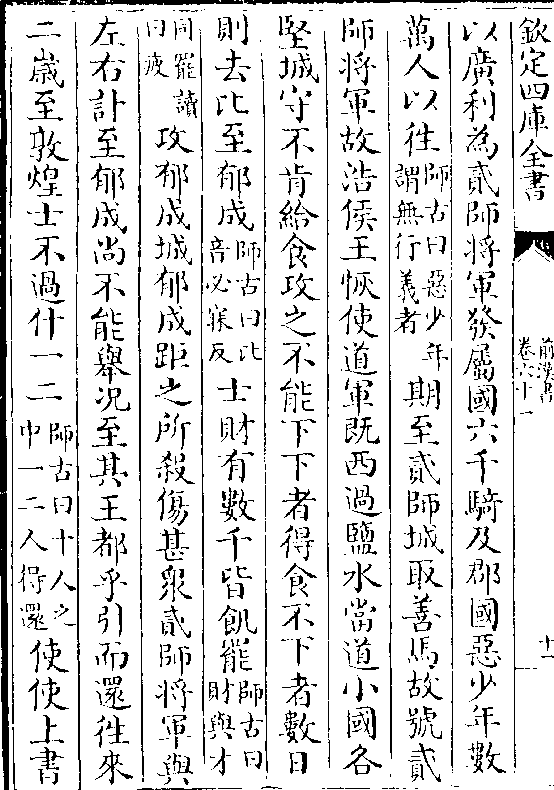 欽定四庫全書
前漢書
卷六十一
十一
以廣利為貳師將軍發屬國六千騎及郡國惡少年數
萬人以徃師古曰惡少年謂無行義者期至貳師城取善馬故號貳
師將軍故浩侯王恢使道軍既西過鹽水當道小國各
堅城守不肯給食攻之不能下下者得食不下者數日
則去比至郁成師古曰比音必寐反士財有數千皆飢罷師古曰財與才
同罷讀曰疲攻郁成城郁成距之所殺傷甚衆貳師將軍與
左右計至郁成尚不能舉況至其王都乎引而還徃來
二嵗至敦煌士不過什一二師古曰十人之中一二人得還使使上書